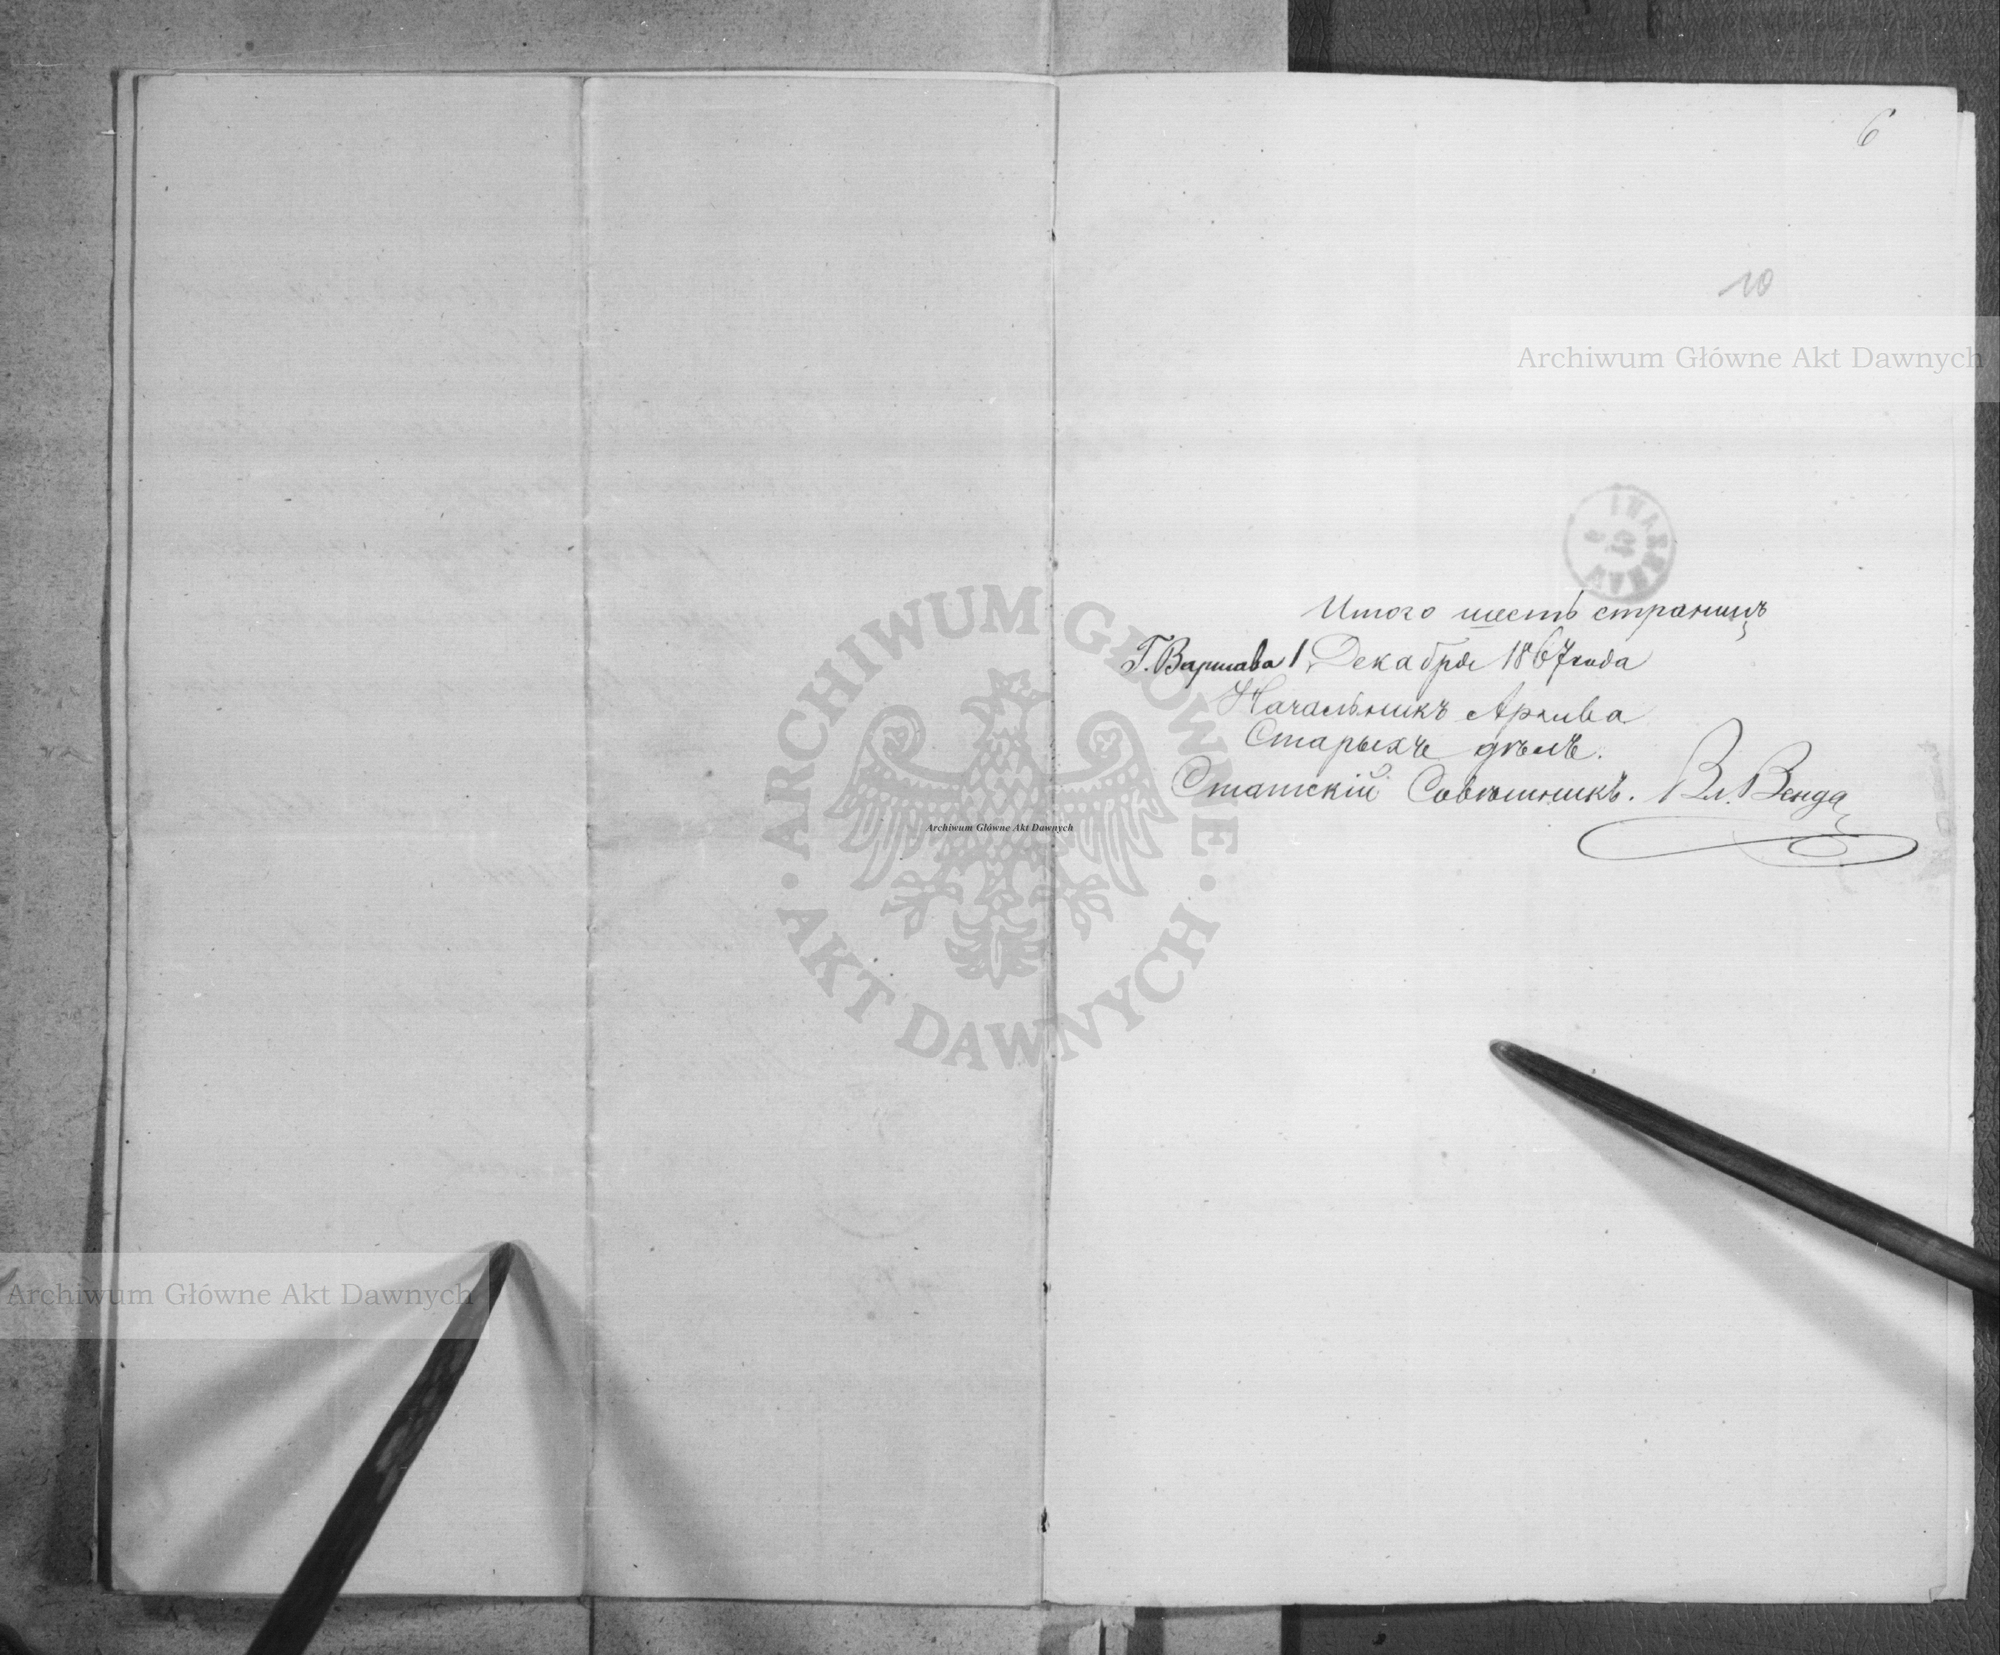 6
10
Archiwum Główne Akt Dawnych
Итого шесть страницъ
Г. Варшава 1 Декабря 1867 года
Начальникъ Архива
Старыхъ дѣлъ.
Статскій Совѣтникъ. Вл. Венда
ARCHIWUM GŁÓWNE
AKT DAWNYCH
Archiwum Główne Akt Dawnych
Archiwum Główne Akt Dawnych